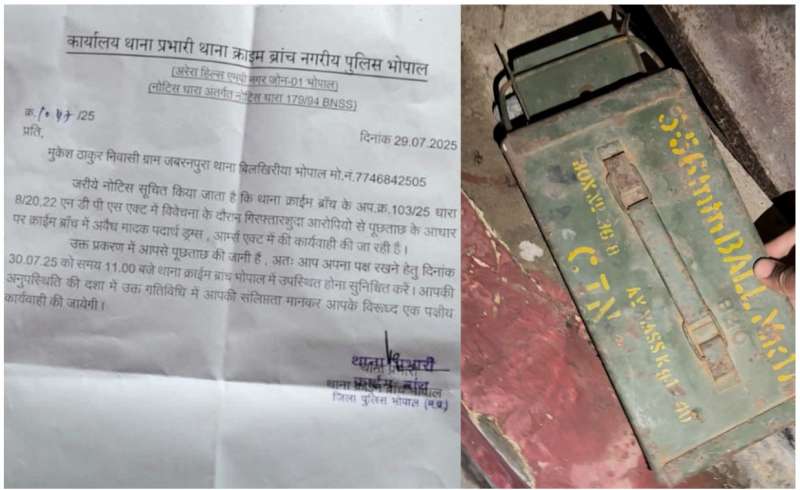 कार्यालय थाना प्रभारी थाना क्राईम ब्रांच नगरीय पुलिस भोपाल
(अरेरा हिल्स एमपी नगर जोन-01 भोपाल)
(नोटिस धारा अतर्गत नोटिस धारा 179/94 BNSS)
क्र. /25
दिनांक 29.07.2025
प्रति,
मुकेश ठाकुर निवासी ग्राम जबरनपुरा थाना बिलखिरीया भोपाल मो.नं.7746842505
जरीये नोटिस सूचित किया जाता है कि थाना क्राईम ब्रांच के अप.क्र.103/25 धारा
8/20.22 एन डी पी एस एक्ट में विवेचना के दौरान गिरफ्तारशुदा आरोपियो से पूछताछ के आधार
पर क्राईम ब्रॉच में अवैध मादक पदार्थ ड्रग्स , आर्म्स एक्ट में की कार्यवाही की जा रही है।
उक्त प्रकरण में आपसे पूछताछ की जानी है , अतः आप अपना पक्ष रखने हेतु दिनांक
30.07.25 को समय 11.00 बजे थाना क्राईम ब्रांच भोपाल में उपस्थित होना सुनिश्चित करें। आपकी
अनुपस्थिति की दशा में उक्त गतिविधि में आपकी संलिप्तता मानकर आपके विरूध्द एक पक्षीय
कार्यवाही की जायेगी।
थाना प्रभारी
थाना प्रभारी
क्राईम ब्रांच
थाना क्राईम ब्रांच भोपाल
जिला पुलिस भोपाल (म.प्र.)
5.56mm BALL
BOX
C.TN